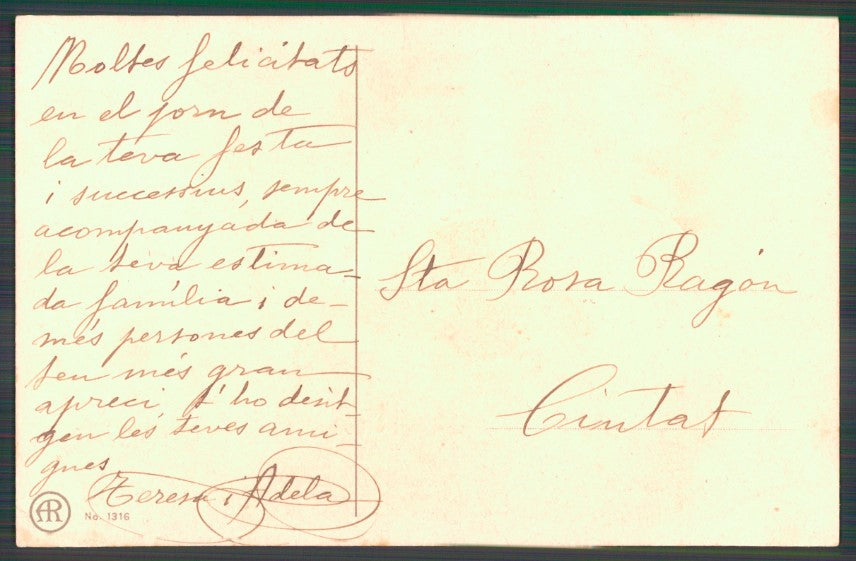 Moltes felicitats
en el jorn de
la teva festa
i successius, sempre
acompanyada de
la teva estima-
da família i de-
més persones del
teu més gran
apreci, t'ho desit-
gen les teves ami-
gues
Teresa i Adela
AR
No. 1316
Sta Rosa Ragón
Ciutat